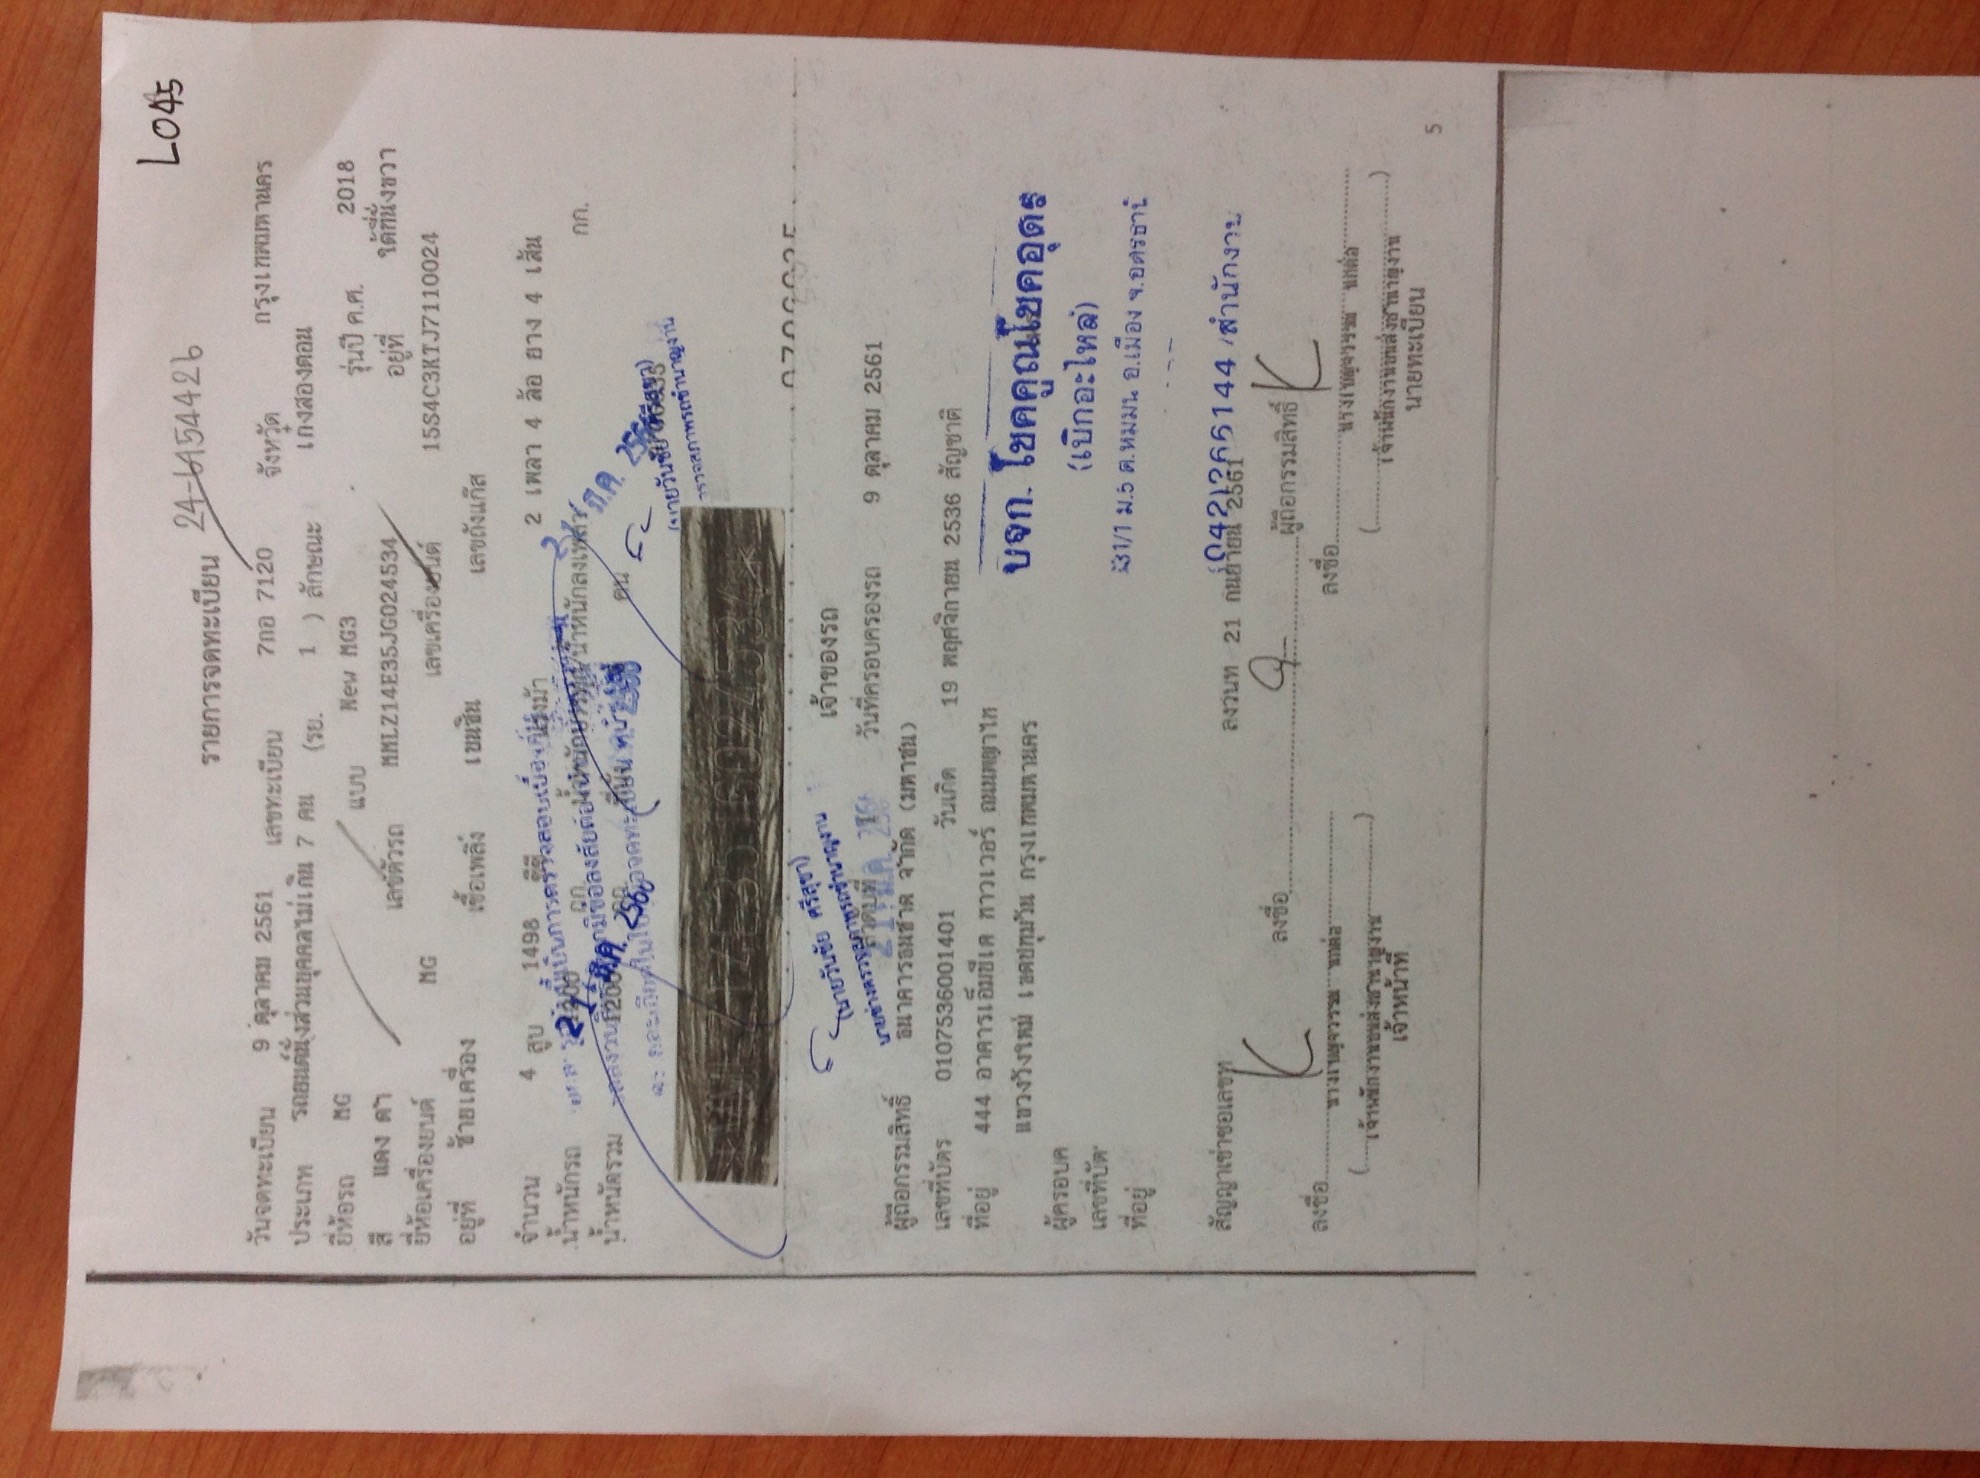 L045
24-ฬ154426
รายการจดทะเบียน
วันจดทะเบียน 9 ตุลาคม 2561 เลขทะเบียน 7กอ 7120 จังหวัด กรุงเทพมหานคร
ประเภท รถยนต์นั่งส่วนบุคคลไม่เกิน 7 คน (รย. 1 ) ลักษณะ เก๋งสองตอน
ยี่ห้อรถ MG แบบ New MG3 รุ่นปี ค.ศ. 2018
สี แดง ดำ เลขตัวรถ MMLZ14E35JG024534 อยู่ที่ ใต้ที่นั่งขวา
ยี่ห้อเครื่องยนต์ MG เลขเครื่องยนต์ 15S4C3KTJ7110024
อยู่ที่ ซ้ายเครื่อง เชื้อเพลิง เบนซิน เลขถังแก๊ส
จำนวน 4 สูบ 1498 ซีซี แรงม้า 2 เพลา 4 ล้อ ยาง 4 เส้น
น้ำหนักรถ 1200 กก. น้ำหนักลงเพลา กก.
น้ำหนักรวม คน
(นายวันชัย ศรีสุขา)
เจ้าของรถ
(นายวันชัย ศรีสุขา)
นายช่างตรวจสภาพรถชำนาญงาน
ลำดับที่ วันที่ครอบครองรถ 9 ตุลาคม 2561
ผู้ถือกรรมสิทธิ์ ธนาคารธนชาต จำกัด (มหาชน)
เลขที่บัตร 0107536001401 วันเกิด 19 พฤศจิกายน 2536 สัญชาติ
ที่อยู่ 444 อาคารเอ็มบีเค ทาวเวอร์ ถนนพญาไท
แขวงวังใหม่ เขตปทุมวัน กรุงเทพมหานคร
บจก. โชคคูณโชคอุดร
(เบิกอะไหล่)
ผู้ครอบค
เลขที่บัต
ที่อยู่
331/1 ม.5 ต.หมมน อ.เมือง จ.อุดรธานี
(042)266144 /สำนักงาน
สัญญาเช่าซื้อเลขที่ ลงวันที่ 21 กันยายน 2561
ลงชื่อ ผู้ถือกรรมสิทธิ์
ลงชื่อ
ลงชื่อ
เจ้าพนักงานขนส่งชำนาญงาน
เจ้าหน้าที่
เจ้าพนักงานขนส่งชำนาญงาน
นายทะเบียน
5